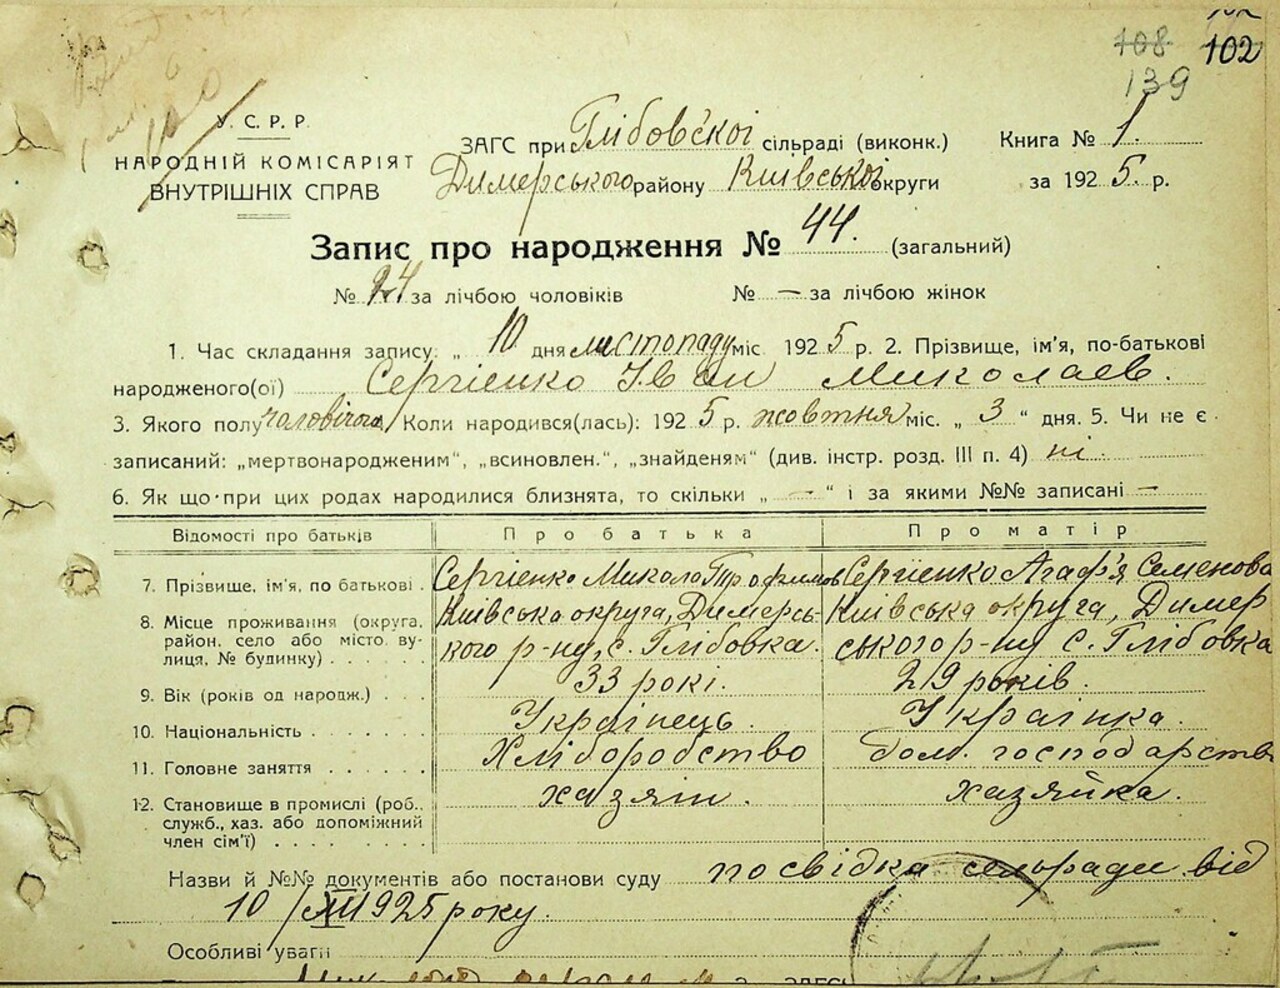 108 102
139
У. С. Р. Р.
НАРОДНІЙ КОМІСАРІЯТ
ВНУТРІШНІХ СПРАВ
ЗАГС при Глібовскої сільраді (виконк.) Книга № 1.
Димерського району Київської округи за 1925. р.
Запис про народження № 44. (загальний)
№ 24 за лічбою чоловіків № — за лічбою жінок
1. Час складання запису: „ 10 дня листопаду міс. 1925 р. 2. Прізвище, ім'я, по-батькові
народженого(ої) Сергієнко Іван Миколаєв.
3. Якого полу чоловічого Коли народився(лась): 1925 р. жовтня міс. „ 3 “ дня. 5. Чи не є
записаний: „мертвонародженим“, „всиновлен.“, „знайденям“ (див. інстр. розд. III п. 4) ні.
6. Як що при цих родах народилися близнята, то скільки „ — “ і за якими №№ записані —
Відомості про батьків Про батька Про матір
7. Прізвище, ім'я, по батькові . Сергієнко Микола Трофимов Сергієнко Агаф'я Семенова
8. Місце проживання (округа, Київська округа, Димерсь- Київська округа, Димер
район, село або місто, ву-
лиця, № будинку) . . . . . кого р-ну, с. Глібовка. ського р-ну с. Глібовка
9. Вік (років од народж.) . . . 33 рокі. 29 років.
10. Національність . . . . . . . Українець. Українка.
11. Головне заняття . . . . . . Хліборобство дом. господарств
12. Становище в промислі (роб., хазяін. хазяйка.
служб., хаз. або допоміжний
член сім'ї) . . . . . . . . .
Назви й №№ документів або постанови суду посвідка сельради від
10/XII 1925 року.
Особливі уваги